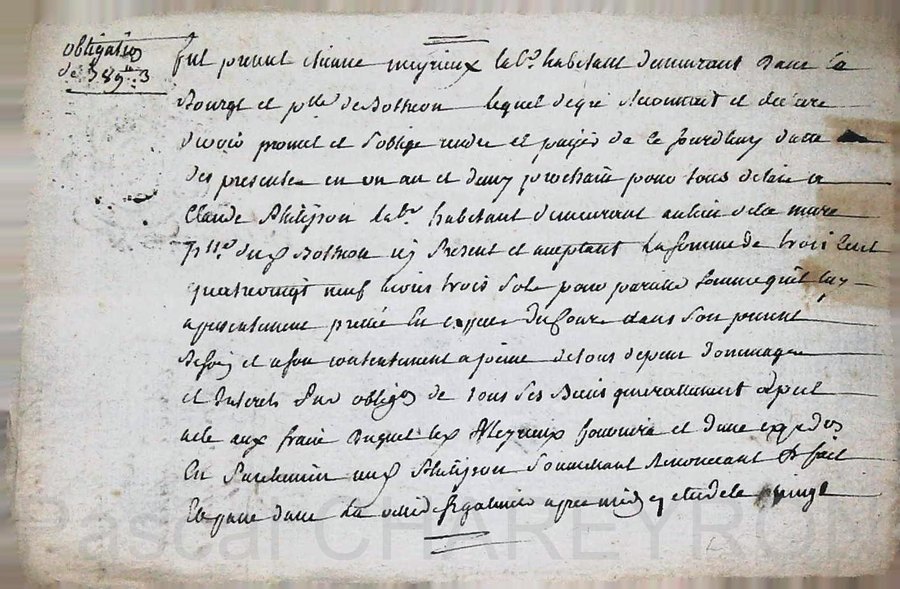 obligaõn
de 389ᵗᵗ 3
fut present etienne meyrieux lab.r habitant demeurant dans le
Bourgt et p.sse de Bothéon lequel de gré reconnait et declare
devoir promet et s'oblige rendre et payer de ce jourdhuy datte
des presentes en un an et demy prochain pour tous delais a
Claude Philipson lab.r habitant demeurant au lieu de la mure
p.sse dud Botheon icy present et aceptant la somme de trois cent
quatrevingt neuf livres trois sols pour pareille somme qu'il luy
a presentement prettée en espece du cours dans son present
besoin et a son contentement a peine de tous depens dommages
et interets sur obligõn de tous ses Biens generallement a
acte aux frais duquel led Meyrieux fournira et d'une expedõn
en parchemin aud Philipson soumettant renonceant &c fait
et passé dans la ville de St galmier apres midy etude le vingt
Pascal CHAREYRON